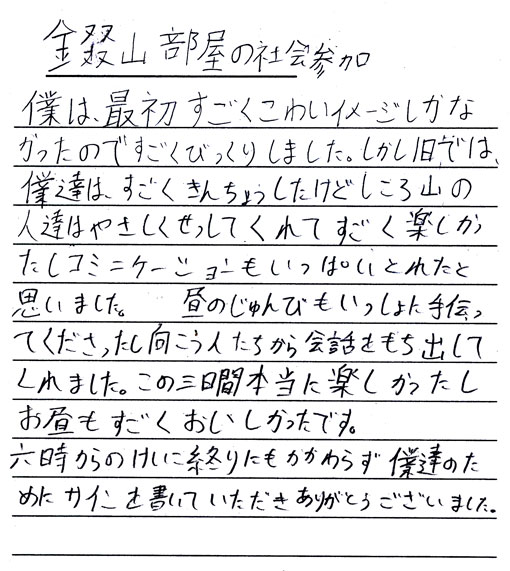 金叕山部屋の社会参加
僕は、最初すごくこわいイメージしかな
かったのですごくびっくりしました。しかし1日では、
僕達は、すごくきんちょうしたけどしころ山の
人達はやさしくせっしてくれてすごく楽しかっ
たしコミニケーションもいっぱいとれたと
思いました。 昼のじゅんびもいっしょに手伝っ
てくださったし向こう人たちから会話をもち出して
くれました。この三日間本当に楽しかったし
お昼もすごくおいしかったです。
六時からのけいに終りにもかかわらず僕達のた
めにサインを書いていただきありがとうございました。